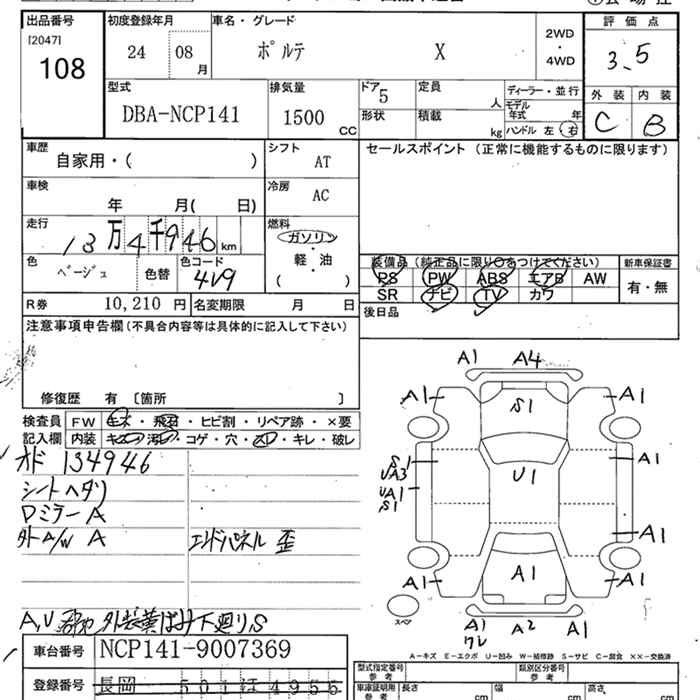 出品番号 初度登録年月 車名・グレード 評価点
[2047]
108 24 08 月 ポルテ X 2WD・4WD 3.5
型式 排気量 ドア 5 定員 人 ディーラー・並行 外装 内装
DBA-NCP141 1500 CC 形状 積載 kg モデル年式 年 C B
ハンドル 左 右
車歴 シフト セールスポイント (正常に機能するものに限ります)
自家用・( ) AT
車検 冷房
年 月( 日) AC
走行 燃料
13万4千946 km ガソリン
軽・油
( )
色 色替 色コード 装備品 (純正品に限り○をつけてください) 新車保証書
ベージュ 4V9 PS PW ABS エアB AW 有・無
R券 10,210 円 名変期限 月 日 SR ナビ TV カワ
後日品
注意事項申告欄(不具合内容等は具体的に記入して下さい)
修復歴 有 [箇所 ]
検査員 FW キズ・飛石・ヒビ割・リペア跡・×要
記入欄 内装 キズ・汚れ・コゲ・穴・スレ・キレ・破レ
オド 134946
シートヘタリ
Dミラー A
外A/W A エンドパネル 歪
A,U 外装 下廻りS
車台番号 NCP141-9007369
登録番号 長岡 501ほ4955
A1 A4
A1 S1 A1
S1 A1
UA3 U1
UA1
S1
A1
A1 A1 A1
スペア A1 A2 A1
ワレ
A-キズ E-エクボ U-凹み W-補修跡 S-サビ C-腐食 XX-交換済
型式指定番号 類別区分番号
参考 参考
車庫証明用 長さ cm 幅 cm 高さ cm
参考